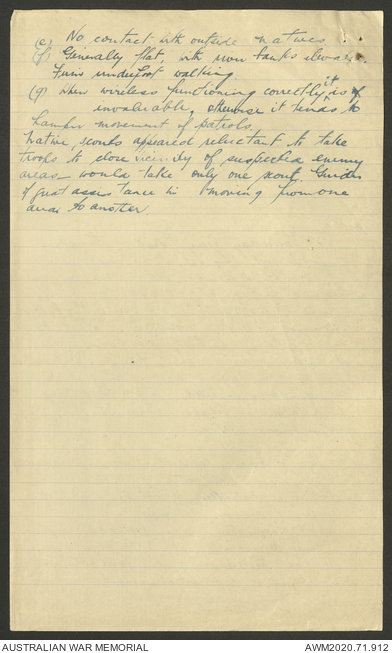 (e) No contact with outside natives. . .
(f) Generally flat, with river banks
Firm underfoot walking
(g) When wireless functioning correctly it is
invaluable, otherwise it tends to
hamper movement of patrols.
Native scouts appeared reluctant to take
troops to close vicinity of suspected enemy
areas - would take only one scout. Guides
of great assistance in moving from one
area to another.
AUSTRALIAN WAR MEMORIAL
AWM2020.71.912